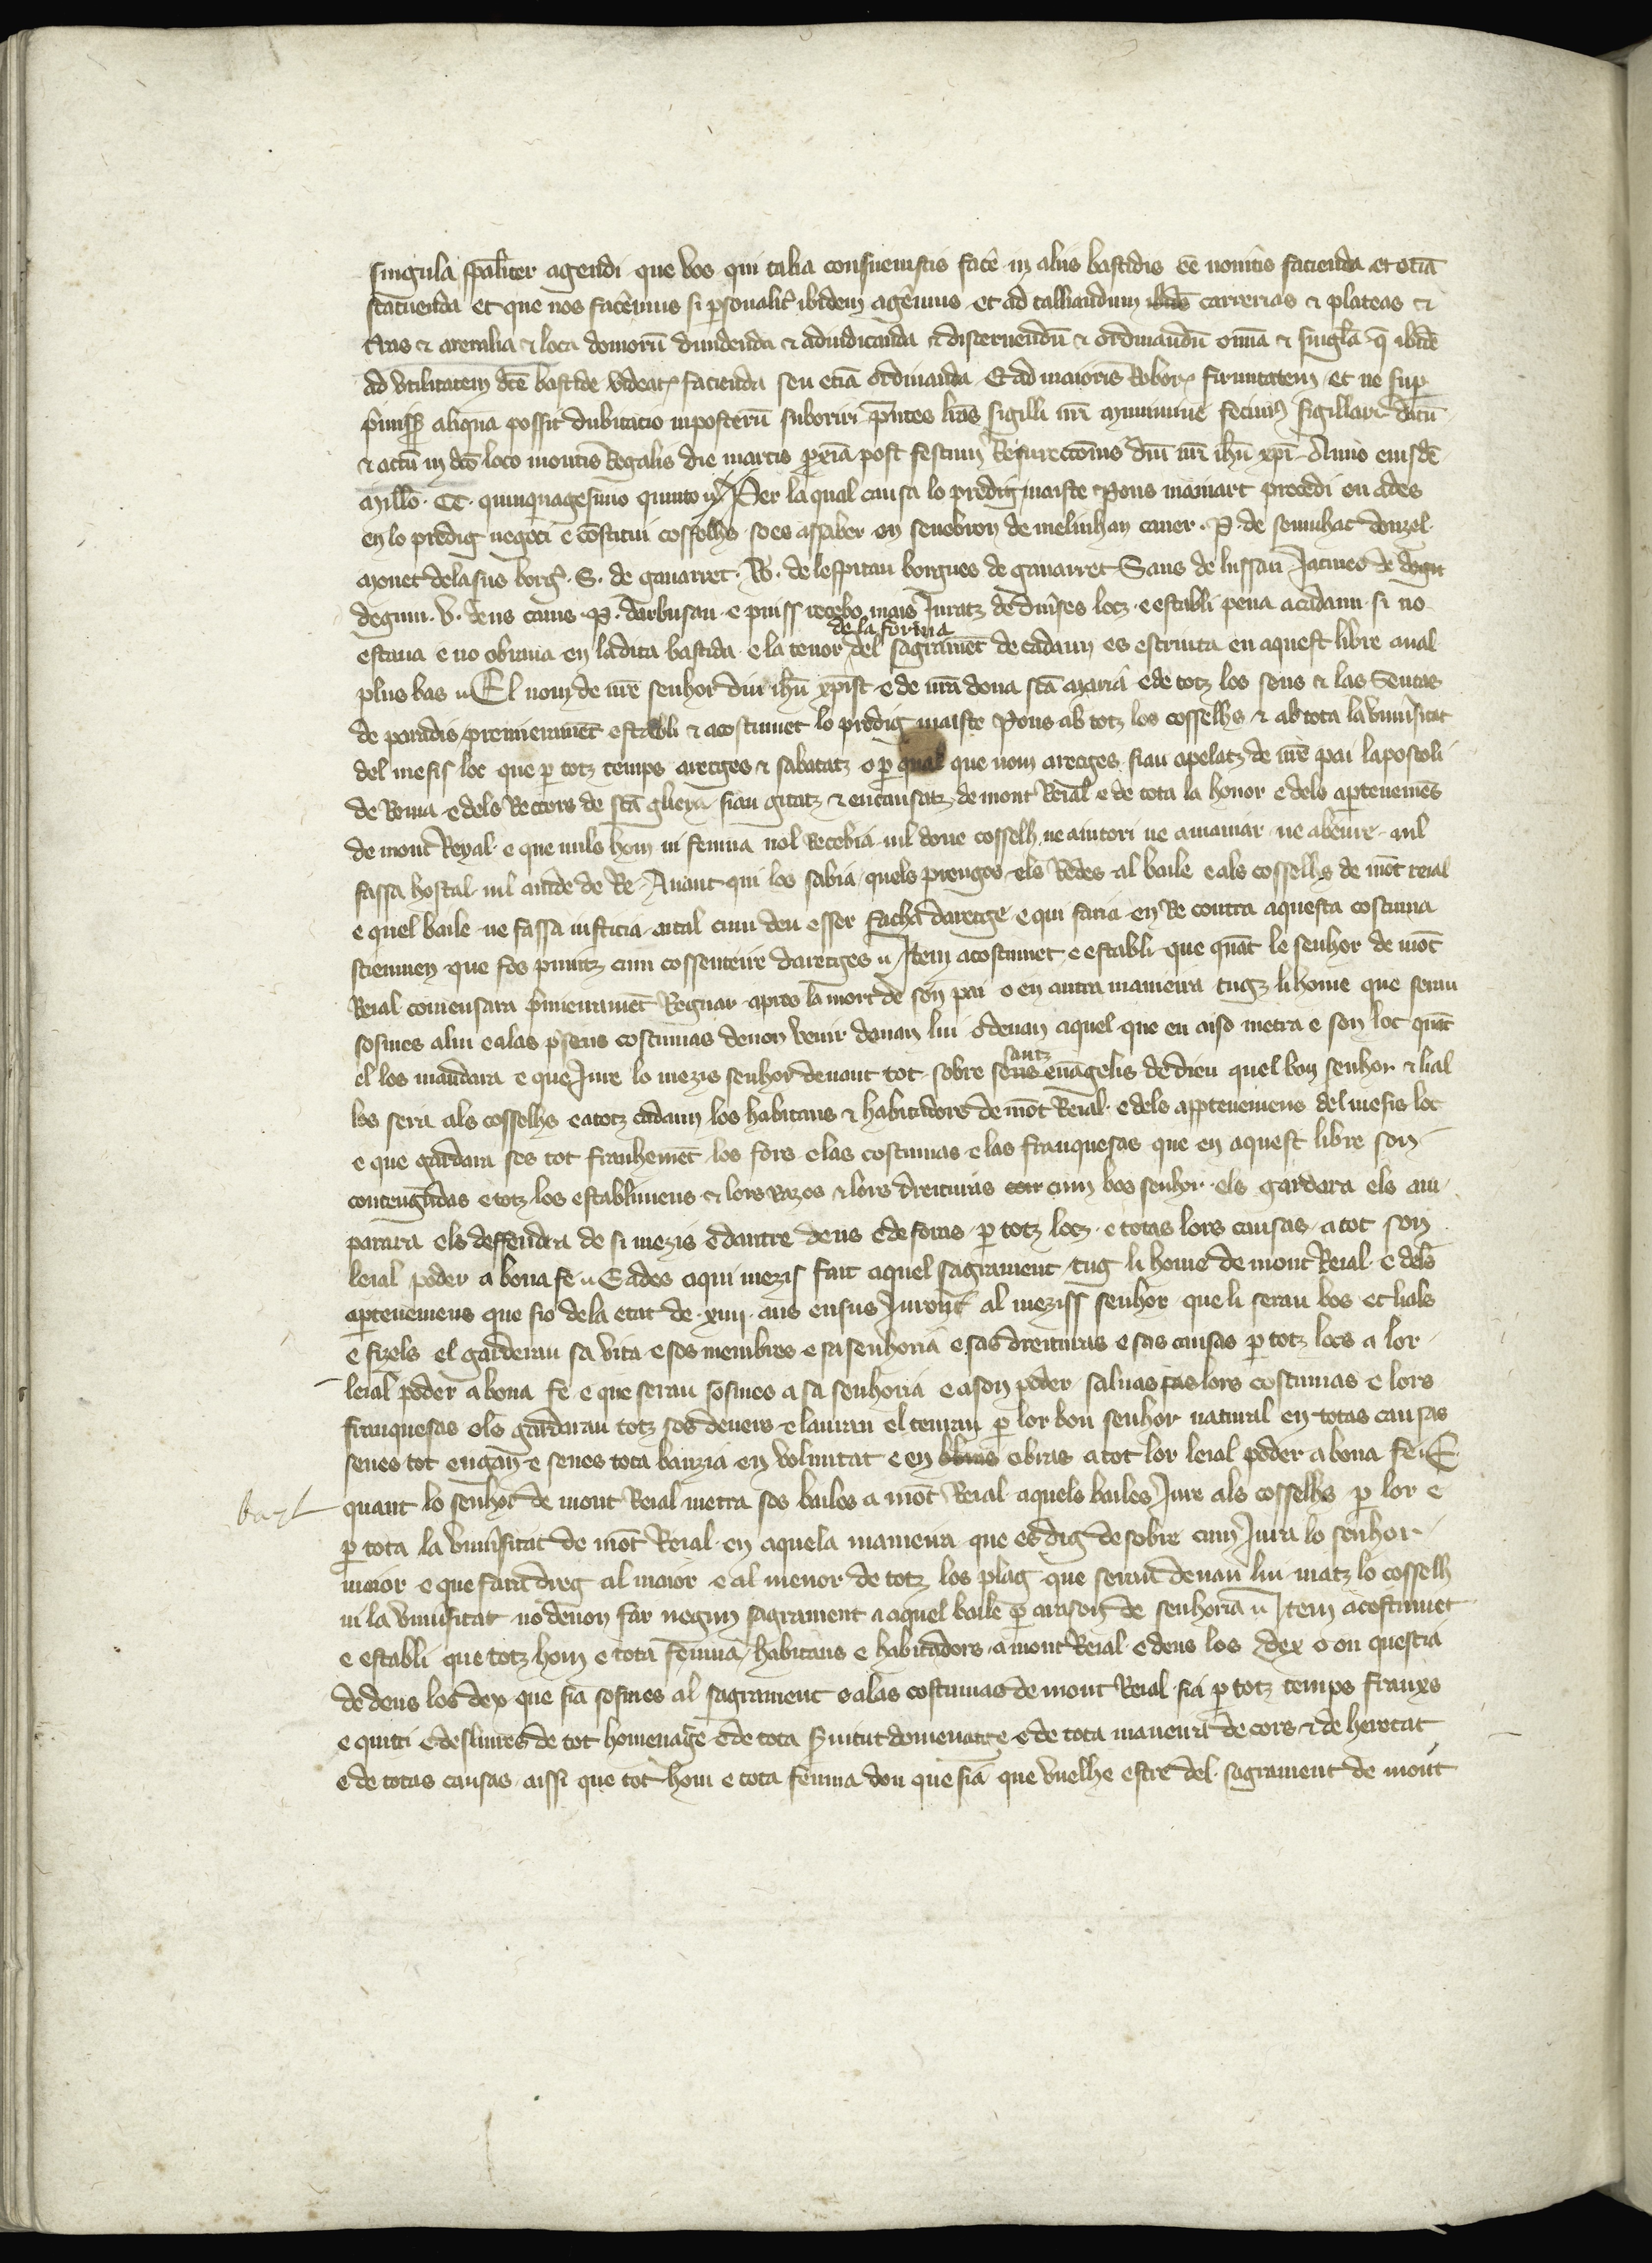 singula spaliter agendi que vos qui talia consuevistis facere in aliis bastidis eē noveritis facienda et etiā
statuenda et que nos faceremus si psonaliter ibidem ageremus et ad talliandum carrerias & plateas &
& arenalia & loca domorū dividenda & adiudicanda & discernendū & ordinandū omīa & singula q̄ ibidē
ad utilitatem dc̄e bastide videatʳ facienda seu etiā ordinanda. Et ad maioris Roboris firmitatem et ne sup
p̄missis aliqua possit dubitacio inposterū suboriri p̄ntes lr̄as sigilli nr̄i munimine fecimus sigillari. datū
& actū in dc̄o loco montis Regalis die martis p̄xīa post festum Resurectōnis dn̄i nr̄i ihū xp̄i Anno eiusdē
millo. CC. quinquagesimo quinto. Per laqual causa lo predig maiste Pons mainart procedi en ades
en lo predig negoci e cōstitui cosselhs so es assaber en senebron de melinhan cauer. P. de somuhac donzel.
monet delasus borg. S. de gauarret. W. de lespitau borgues de gauarret Sans de lussan Jacmes de
degun. V. dens cams. P. darbusan e puiss recebo mais Juratz de diuses locz e establi pena acadaun si no
estaua e no obraua en la dita bastida e la tenor de la forma del sagramēt de cadaun es escriuta en aquest libre aual
plus bas. El nom de nr̄e senhor diu ihū xp̄ist e de nr̄a dona sc̄a maria e de totz los sens & las Sentas
de paradis premieramēt establi & acostumet lo predig maiste Pons ab totz los cosselhs & ab tota la uniusitat
del mesis loc que p totz temps aretges & sabatatz o p qual que nom aretges sian apelatz de nr̄e pai lapostoli
de Roma e dels Rectors de sc̄a glieya sian gitatz & encausatz de mont Reial e de tota la honor e dels aptenemēs
de mont Reyal e que nuls hom ni femna nol Recebia nil done cosselh ne aiutori ne amaniar ne abeure nil
fassa hostal nil aiude de Re. Auant qui los sabia quels prenges els Redes al baile e als cosselhs de mōt reial
e quel baile ne fassa iusticia aital cum deu esser facha daretge e qui faria en Re contra aquesta costuma
sciemmen que fos punitz cum cossenteire daretges. Item acostumet e establi que quāt le senhor de mōt
Reial comensara p̄meiramēt Regnar apres la mort de son pai o en autra manieira tugz li home que seran
sosmes a lui e a las p̄sens costumas deuon venir deuan lui o deuan aquel que en aiso metra e son loc quāt
el los mandara e que Jure lo mezis senhor deuant tot sobre santz euāgelis de dieu quel bon senhor & lial
los sera als cosselhs e a totz cadaun los habitans & habitadors de mōt Reial e dels apptenemens del mesis loc
e que gardara ses tot franhemēt los fors e las costumas e las franquesas que en aquest libre son
contengudas e totz los establimens & lors razos & lors dreituras cum bos senhor els gardara els am-
parara els deffendra de si mezis e dautre dens e de foras p totz locz e totas lors causas a tot son
leial poder a bona fe. E ades aqui mezis fait aquel sagrament tug li home de mont Reial e dels
aptenemens que sio de la etat de xiiii ans ensus Juront al meziss senhor que li seran bos et lials
e fizels el garderan sa vita e sos membres e sa senhoria e sas dreituras e sas causas p totz locs a lor
leial poder a bona fe e que seran sosmes a sa senhoria e a son poder saluas lors costumas e lors
franquesas els gardaran totz sos deuers e lauran el tenran p lor bon senhor natural en totas causas
senes tot engan e senes tota bauzia en voluntat e en obras a tot lor leial poder a bona fe. E
bayl
quant lo senhor de mont Reial metra sos bailes a mōt Reial aquels bailes Jure als cosselhs p lor e
p tota la uniusitat de mōt Reial en aquela maneira que es dig desobre cum Jura lo senhor
maior e que fara dreg al maior e al menor de totz los plag que seran deuan lui matz lo cosselh
ni la uniusitat no deuon far negun sagrament a aquel baile p arason de senhoria. Item acostumet
e establi que totz hom e tota femna habitans e habitadors a mont Reial e dens los dex o on questia
de dens los dex que sia sosmes al sagrament e a las costumas de mont Reial sia p totz temps franxs
e quiti e desliures de tot homenatge e de tota suitut domenatge e de tota maneira de cors & de heretat
e de totas causas aissi que tot hom e tota femna don que sia que vuelhe estre del sagrament de mont